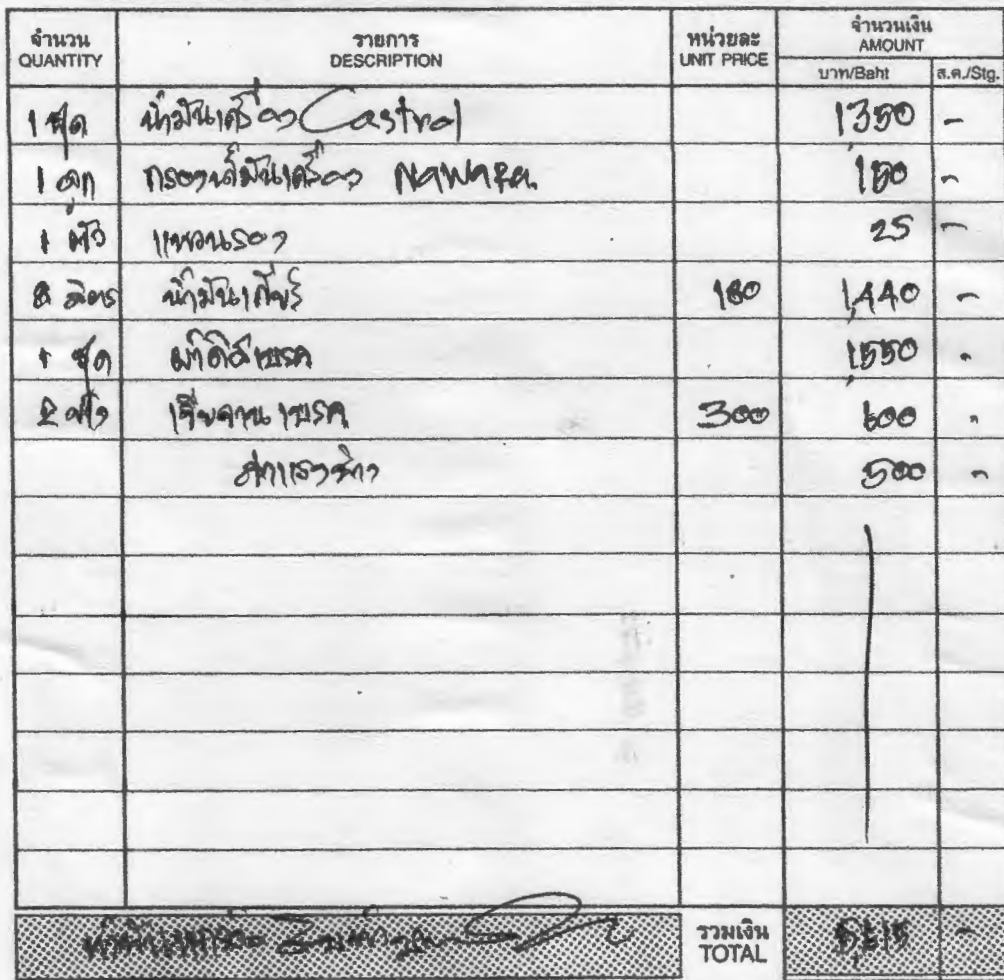 จำนวน QUANTITY รายการ DESCRIPTION หน่วยละ UNIT PRICE จำนวนเงิน AMOUNT
บาท/Baht ส.ต./Stg.
1 ชุด น้ำมันเครื่อง Castrol 1350 -
1 ลูก กรองน้ำมันเครื่อง Nawara 150 -
1 ตัว แหวนรอง 25 -
8 ลิตร น้ำมันเกียร์ 180 1,440 -
1 ชุด ผ้าดิสเบรค 1,550 -
2 ตัว เจียจานเบรค 300 600 -
ค่าแรงช่าง 500 -
รวมเงิน TOTAL 5,615 -